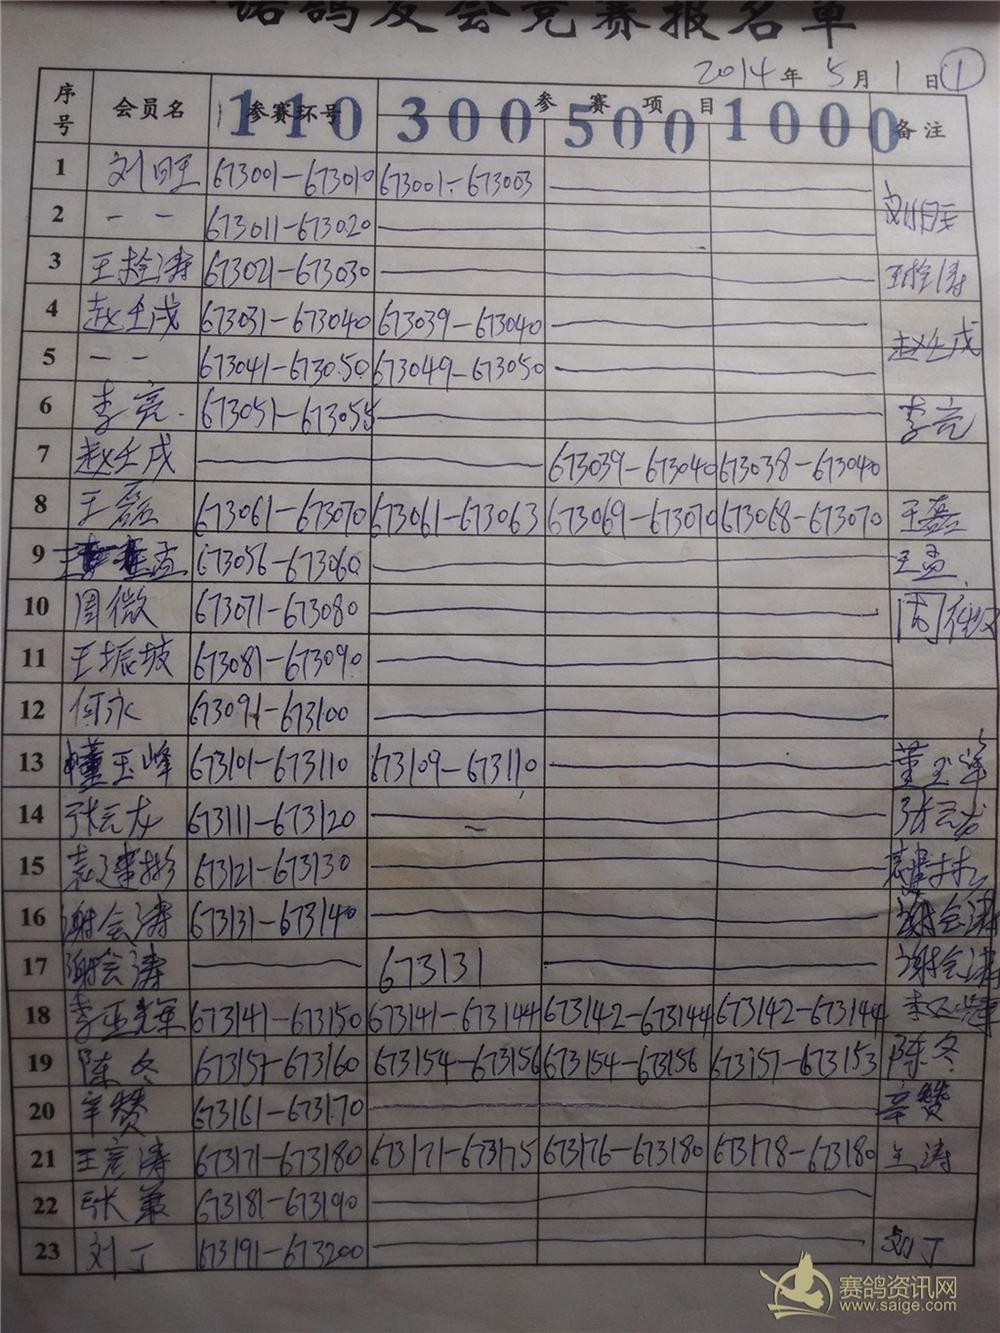 诺鸽友会竞赛报名单
2014年5月1日①
序号 会员名 参赛环号 参赛项目 备注
110 300 500 1000
1 刘旺 673001-673010 673001-673003 刘旺
2 一一 673011-673020
3 王拴涛 673021-673030 王拴涛
4 赵壬戌 673031-673040 673039-673040 赵壬戌
5 一一 673041-673050 673049-673050
6 李亮 673051-673055 李亮
7 赵壬戌 673039-673040 673038-673040
8 王磊 673061-673070 673061-673063 673069-673070 673068-673070 王磊
9 王孟 673056-673060 王孟
10 周微 673071-673080
11 王振坡 673081-673090
12 何永 673091-673100
13 董玉峰 673101-673110 673109-673110 董玉峰
14 张云龙 673111-673120 张云龙
15 袁建彬 673121-673130
16 谢会涛 673131-673140 谢会涛
17 谢会涛 673131 谢会涛
18 李亚辉 673141-673150 673141-673144 673142-673144 673142-673144 李亚辉
19 陈冬 673157-673160 673154-673156 673154-673156 673151-673153 陈冬
20 辛赞 673161-673170 辛赞
21 王彦涛 673171-673180 673171-673175 673176-673180 673178-673180 王涛
22 张 673181-673190
23 刘丁 673191-673200 刘丁
赛鸽资讯网
www.saige.com